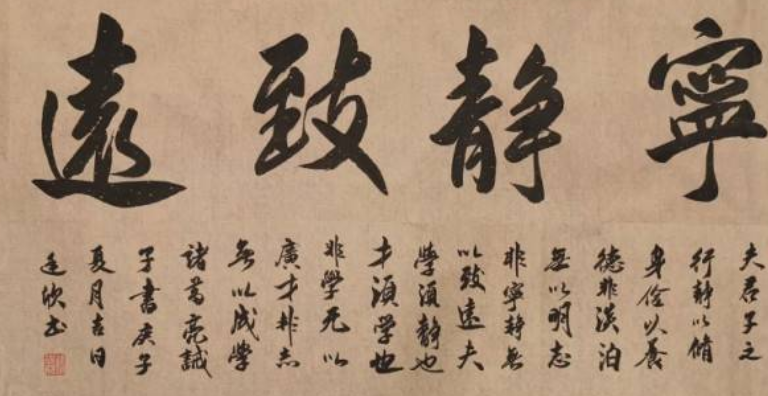 寧靜致遠
夫君子之
行靜以脩
身儉以養
德非淡泊
無以明志
非寧靜無
以致遠夫
學須靜也
才須學也
非學无以
廣才非志
無以成學
諸葛亮誡
子書庚子
夏月吉日
廷欣书